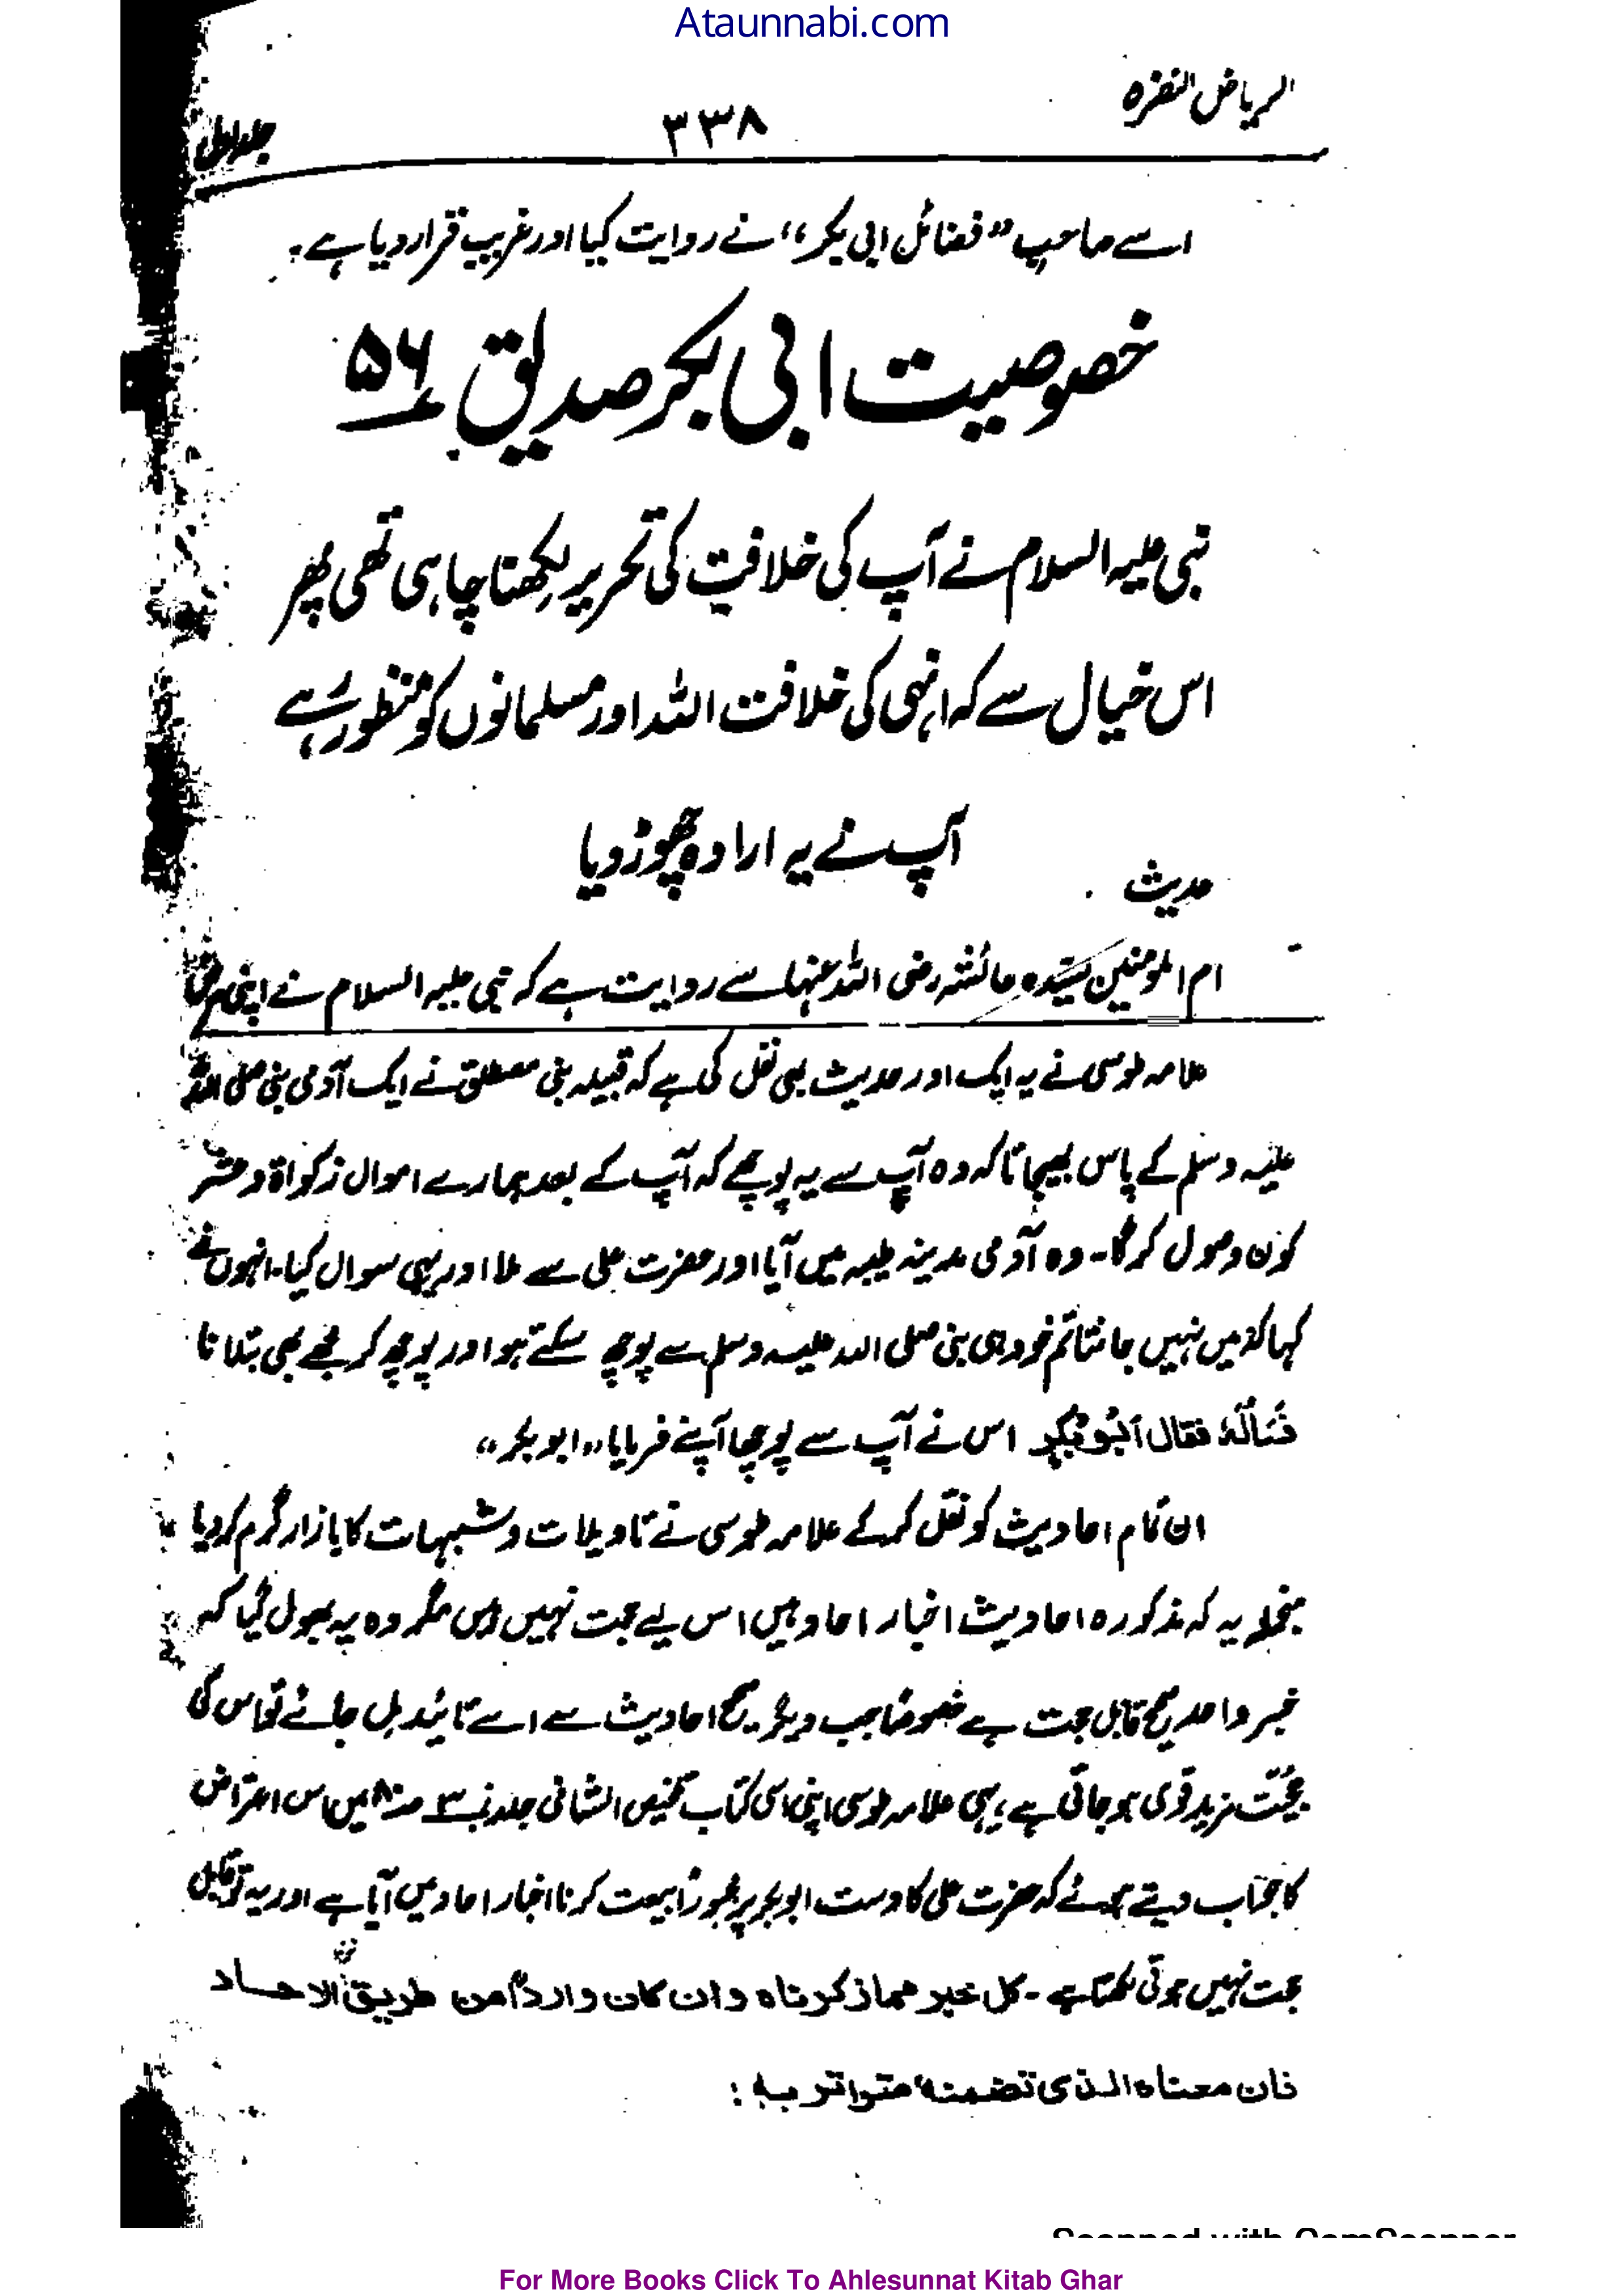 Ataunnabi.com
الریاض النضرہ
۳۳۸
جلد اول
اسے صاحبِ "فضائل ابی بکر" نے روایت کیا اور غریب قرار دیا ہے۔
خصوصیت ابی بکر صدیق ۵۶
نبی علیہ السلام نے آپ کی خلافت کی تحریر لکھنا چاہی تھی پھر
اس خیال سے کہ انہی کی خلافت اللہ اور مسلمانوں کو منظور ہے
آپ نے یہ ارادہ چھوڑ دیا
حدیث
ام المومنین سیّدہ عائشہ رضی اللہ عنہا سے روایت ہے کہ نبی علیہ السلام نے اپنی مرض
علامہ طوسی نے یہ ایک اور حدیث بھی نقل کی ہے کہ قبیلہ بنی مصطلق نے ایک آدمی نبی صلی اللہ
علیہ وسلم کے پاس بھیجا تاکہ وہ آپ سے یہ پوچھے کہ آپ کے بعد ہمارے اموال زکواۃ و عشر
کون وصول کرگا۔ وہ آدمی مدینہ طیبہ میں آیا اور حضرت علی سے ملا اور یہی سوال کیا۔ انہوں نے
کہا کہ میں نہیں جانتا تم خود ہی نبی صلی اللہ علیہ وسلم سے پوچھ سکتے ہو اور پوچھ کر مجھے بھی بتلانا
فَسَأَلَهُ فقال اَبُو بَكرٍ اس نے آپ سے پوچھا آپنے فرمایا "ابو بکر"
ان تمام احادیث کو نقل کرکے علامہ طوسی نے تاویلات و شبہات کا بازار گرم کر دیا
منجملہ یہ کہ مذکورہ احادیث اخبار احاد ہیں اس لیے حجت نہیں ہیں مگر وہ یہ بھول گیا کہ
خبر واحد صحیح قابل حجت ہے خصوصًا جب دیگر صحیح احادیث سے اسے تائید مل جائے تو اس کی
حجّت مزید قوی ہو جاتی ہے، یہی علامہ طوسی اپنی اسی کتاب تلخیص الشافی جلد نمبر ۳ میں اس اعتراض
کا جواب دیتے ہوئے کہ حضرت علی کا دست ابو بکر پر مجبورًا بیعت کرنا اخبار احاد میں آیا ہے اور یہ تو قابل
حجت نہیں ہوتی لکھتا ہے۔ کل خبر مماذکرناہ وان کان واردًا من طریق الاحاد
فان معناہ الذی تضمنہ متواتر بہ :
Scanned with CamScanner
For More Books Click To Ahlesunnat Kitab Ghar